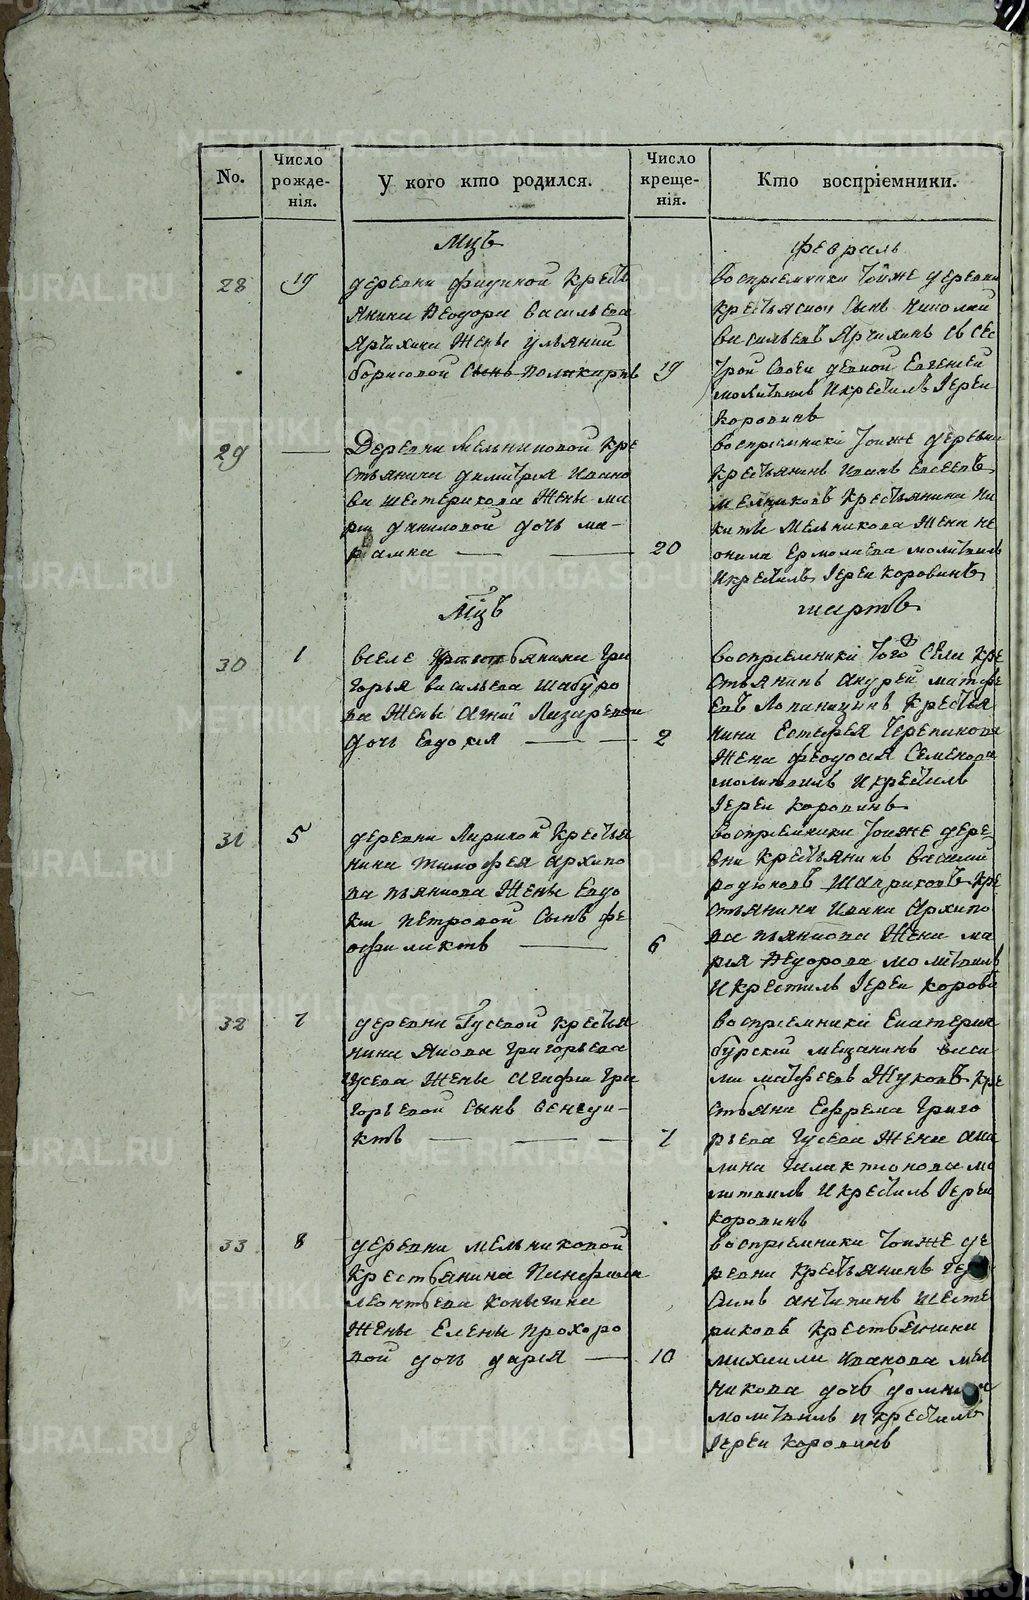 No.
Число
рожде-
нія.
У кого кто родился.
Число
креще-
нія.
Кто воспріемники.
Мцъ
февраль
28
19
деревни фидиной Крестъ
янина Феодора Васильева
Арчихина Жены ульянии
борисовой Сынъ поликарпъ
19
воспріемники Тойже деревни
крестьянской Сынъ Николаи
Васильевъ Арчихинъ съ сес
трой своей девкой Евгенией
молитвилъ Икрестилъ Іереи
Коровинъ
29
Деревни Мельниковой Кре
стьянина димитрия Ивано
ва шестерикова Жены ма
рии даниловой дочь ма-
риамна
20
воспріемники Тойже деревни
Крестьянинъ Иванъ Евсеевъ
Мелниковъ Крестьянина Ни
киты Мельникова Жена не
онила Ермолаева молитвилъ
Икрестилъ Іереи Коровинъ
Мцъ
мартъ
30
1
вселе Крестьянина Гри
горья васильева Шабуро
ва Жены Агнии Лазаревой
дочь Евдокия
2
воспріемники Того Села Кре
стьянинъ Андрей матфе
евъ Лопаницинъ Крестья
нина Естафея Черепанова
Жена феодосия Семенова
молитвилъ Икрестилъ
Іереи Коровинъ
31
5
деревни Ларикой Крестья
нина тимофея архипо
ва пьянкова Жены Евдо
кии петровой Сынъ фе
офилактъ
6
воспріемники Тойже дере
вни Крестьянинъ Василий
родионовъ Шавриковъ Кре
стьянина Ивана Архипо
ва пьянкова Жена ма
рья Федорова молитвилъ
Икрестилъ Іереи Корови
32
7
деревни Гусевой Крестья
нина Якова Григорьева
Гусева Жены Агафии Гри
горьевой Сынъ венеди-
ктъ
7
воспріемники Екатерин
бурский мещанинъ васи
ли матфеевъ Жуковъ Кре
стьяни Ефрема Григо
рьева Гусева Жена аки
лина Галактионова мо
литвилъ Икрестилъ Іереи
Коровинъ
33
8
деревни мельниковой
Крестьянина Панфила
леонтьева Коньгина
Жены Елены прохоро
вой дочь дария
10
воспріемники Тойже де
ревни Крестьянинъ гера
симъ антипинъ Шесте
риковъ Крестьянина
михаила Иванова мел
никова дочь домника
молитвилъ и крестилъ
Іереи Коровинъ
METRIKI.GASO-URAL.RU